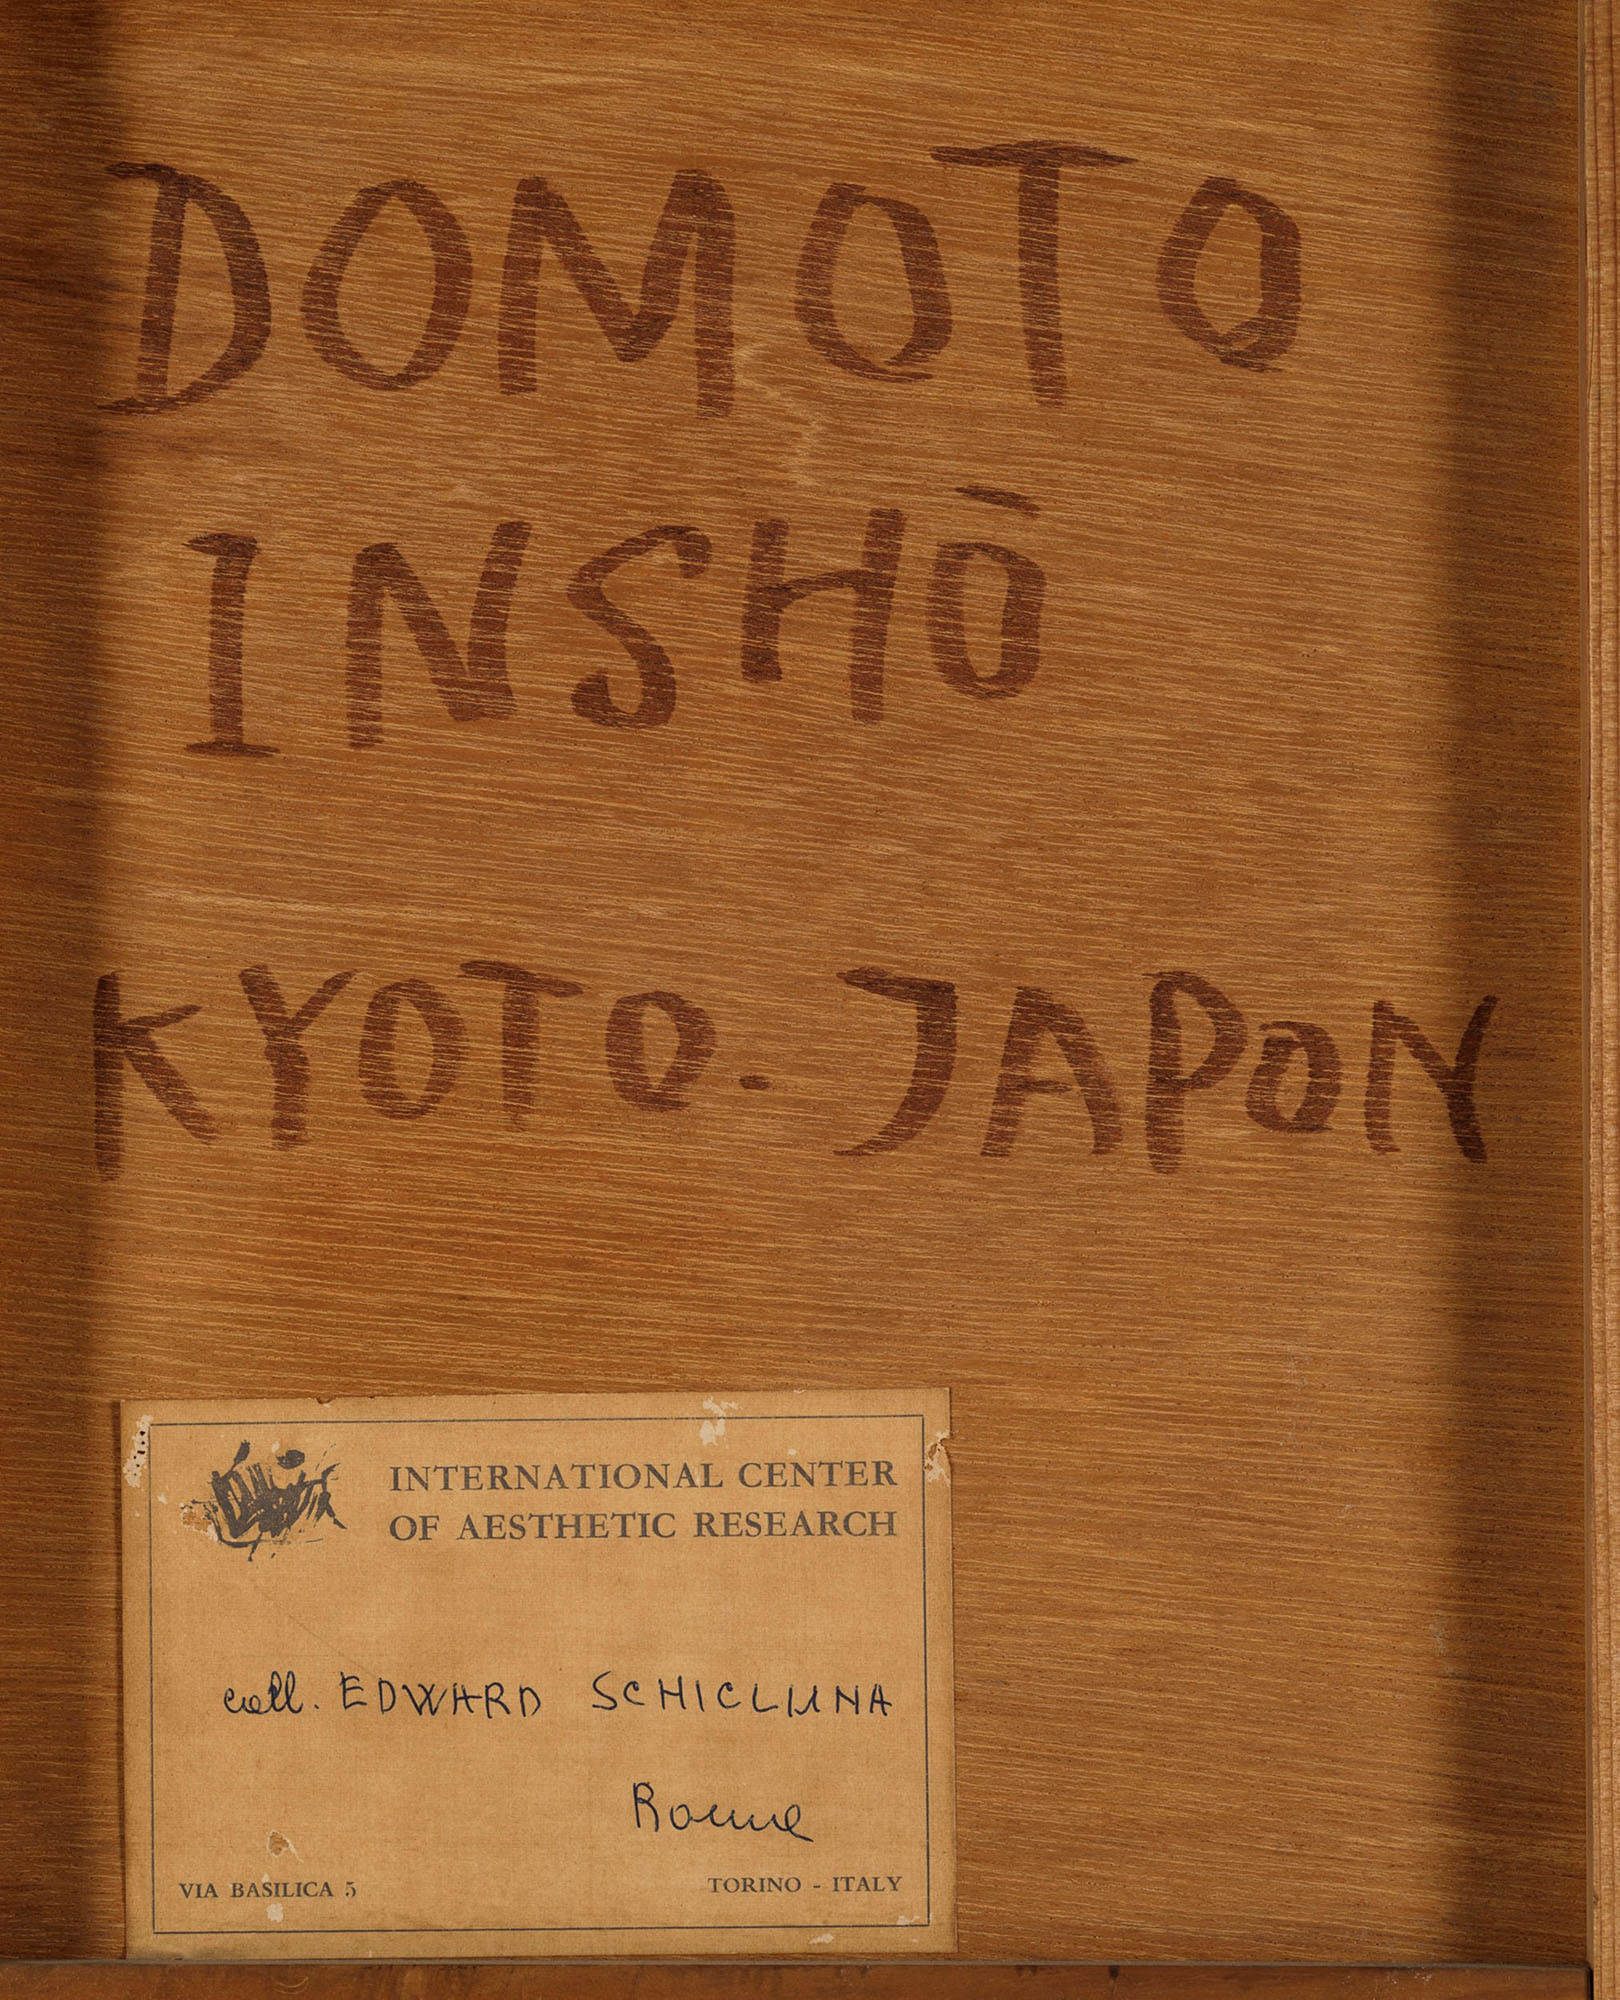 DOMOTO
INSHŌ
KYOTO - JAPON
INTERNATIONAL CENTER
OF AESTHETIC RESEARCH
coll. EDWARD SCHICLUNA
Rome
VIA BASILICA 5
TORINO - ITALY